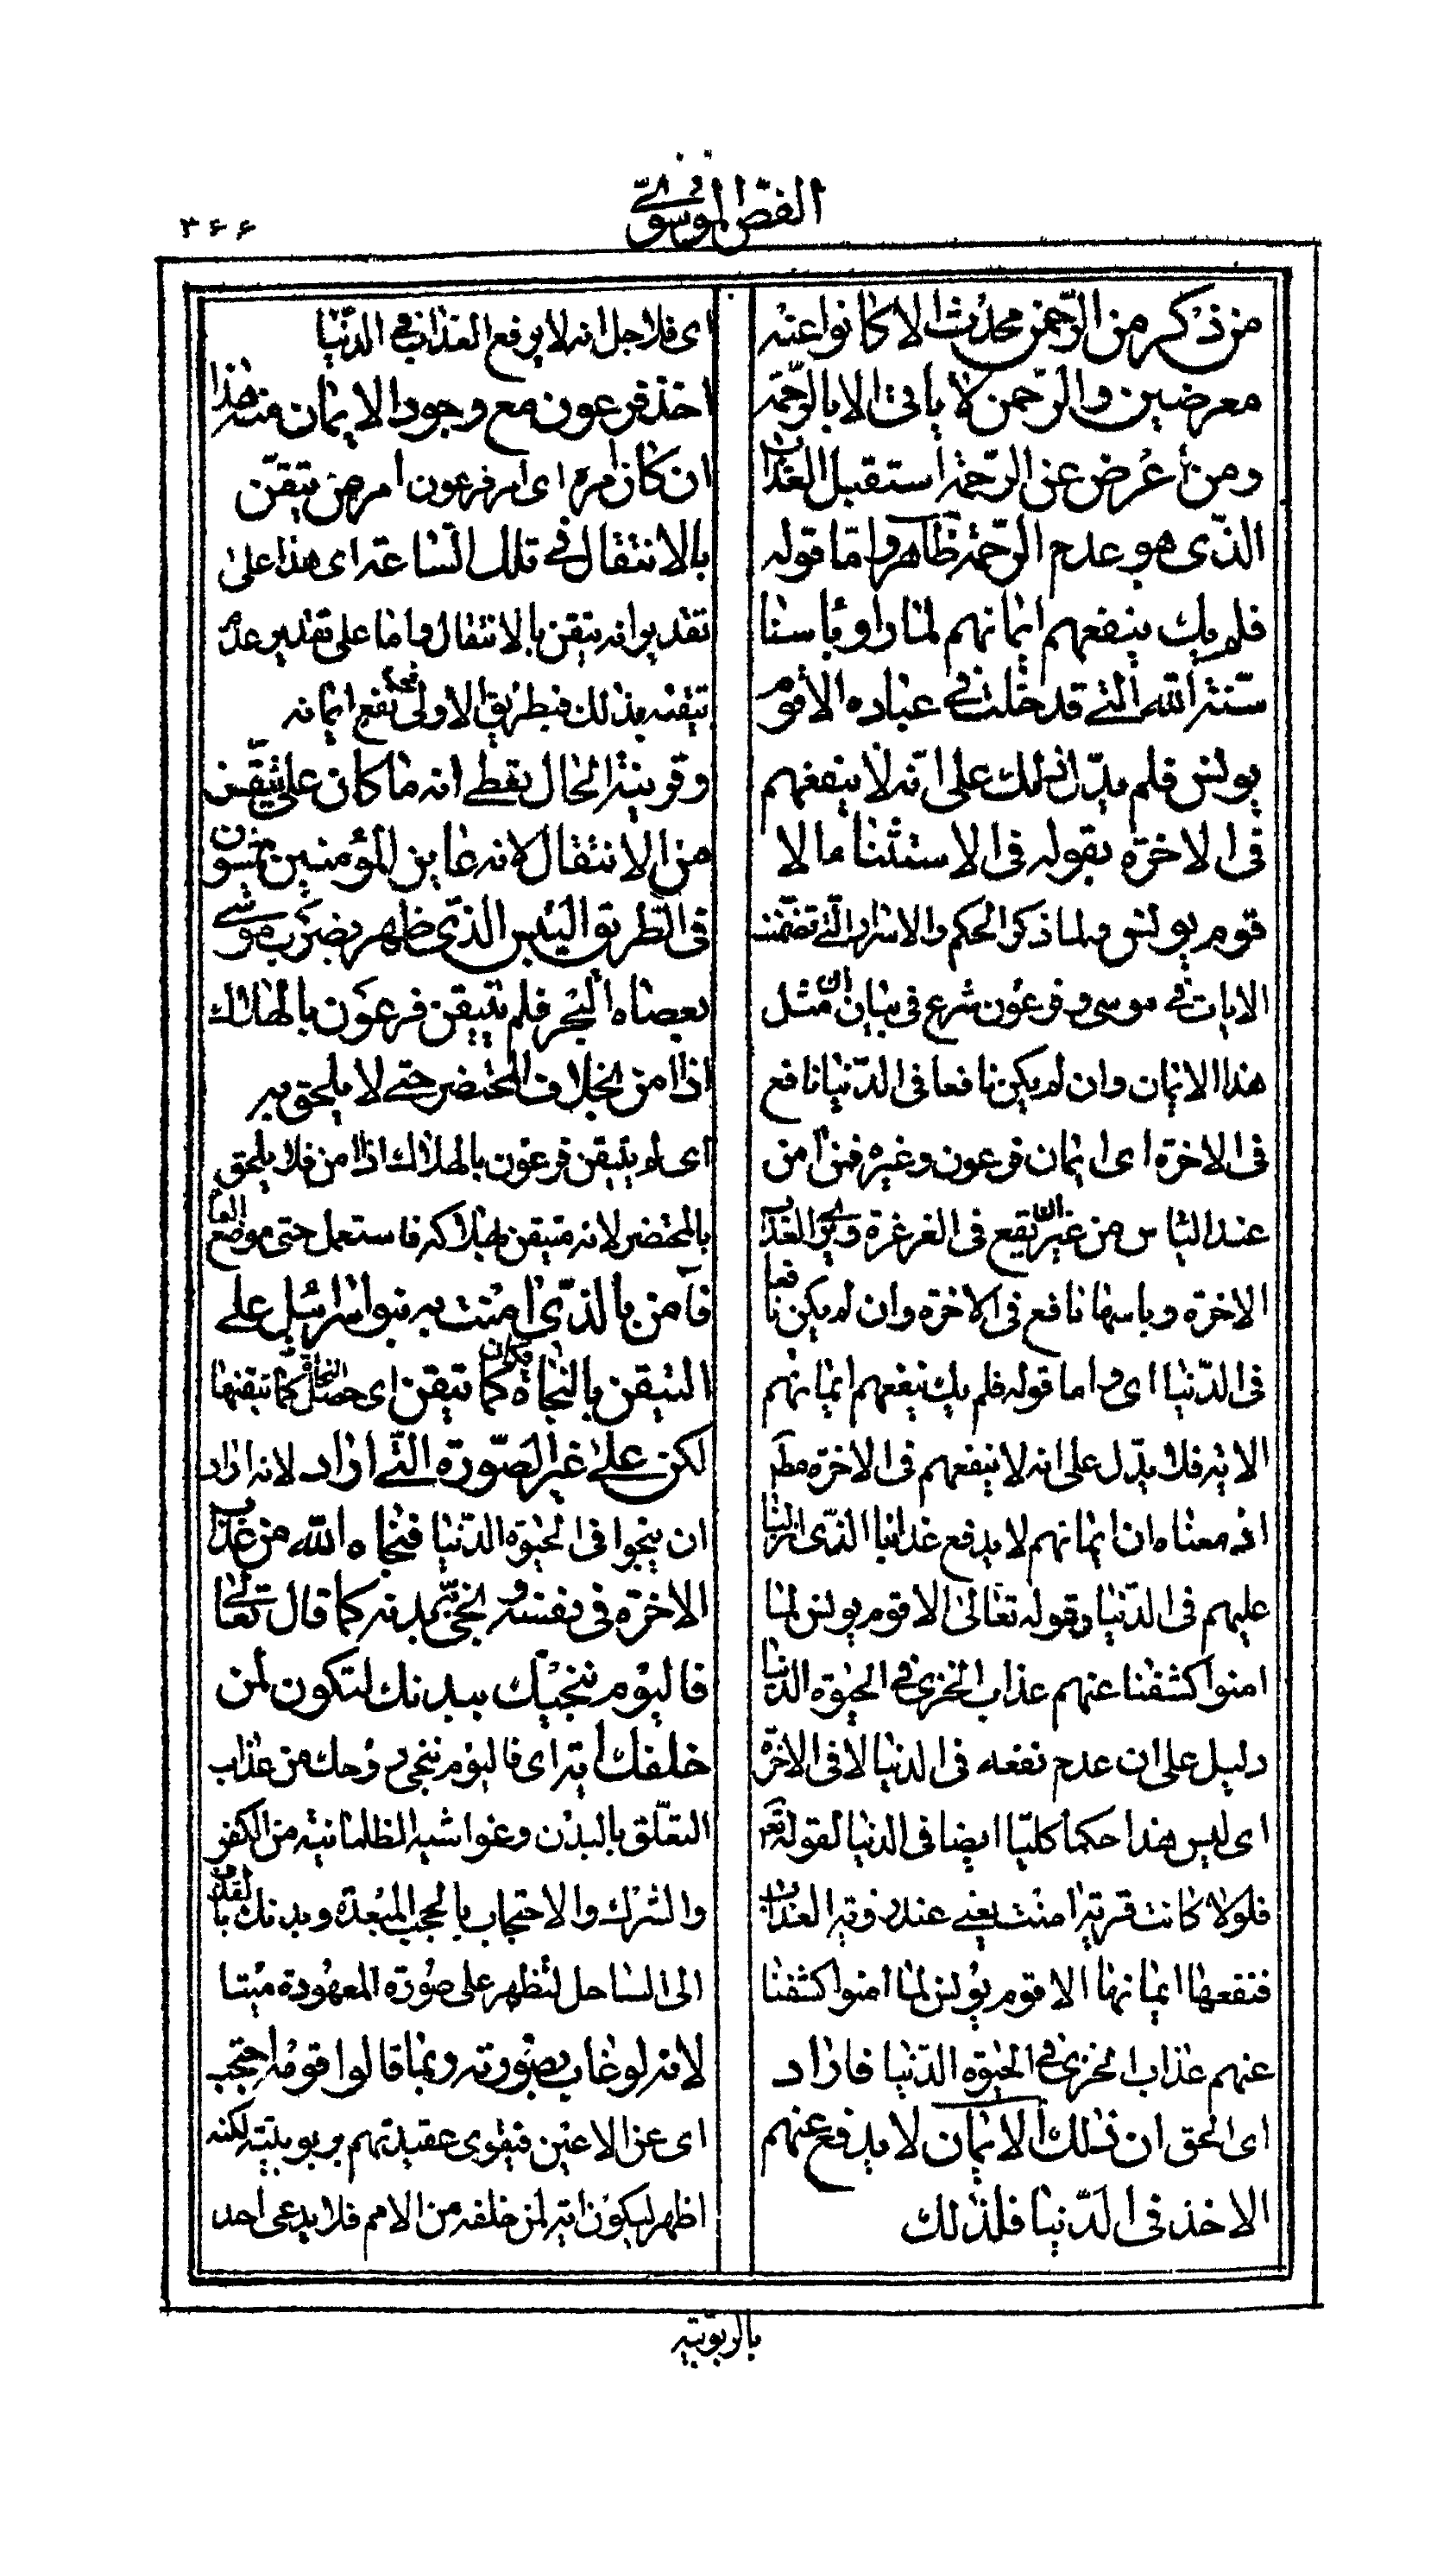 الفصّ الموسوىّ
۳۶۶
من ذكر من الرّحمن محدث الا كانوا عنه
معرضين والرّحمن لا يأتى الا بالرّحمة
ومن أعرض عن الرّحمة استقبل العذاب
الذّى هو عدم الرّحمة ظاهر وامّا قوله
فلم يك ينفعهم ايمانهم لما راوبأسنا
سنّة اللّه التّى قد خلت فى عباده الا قوم
يونس فلم يدلّ ذلك على انّه لا ينفعهم
فى الاخرة بقوله فى الاستثناء الا
قوم يونس ولما ذكر الحكم والاسرار التّى تضمّنته
الايات فى موسى وفرعون شرع فى بيان ان مثل
هذا الايمان وان لم يكن نافعا فى الدّنيا نافع
فى الاخرة اى ايمان فرعون وغيره فمن آمن
عند الياس من غير ان يقع فى الغرغرة ويرى العذاب
الاخرة وباسها نافع فى الاخرة وان لم يكن نافعا
فى الدّنيا اى واما قوله فلم يك ينفعهم ايمانهم
الاية فلا يدلّ على انه لا ينفعهم فى الاخرة مطلقا
انه معناه ان ايمانهم لا يدفع عذابنا الذّى انزلنا
عليهم فى الدّنيا وقوله تعالى الا قوم يونس لما
امنوا كشفنا عنهم عذاب الخزى فى الحيوة الدنيا
دليل على ان عدم نفعه فى الدنيا لا فى الاخرة
اى ليس هذا حكما كليّا ايضا فى الدنيا لقوله تعم
فلولا كانت قرية امنت يعنى عند رؤية العذاب
فنفعها ايمانها الا قوم يونس لما امنوا كشفنا
عنهم عذاب الخزى فى الحيوة الدّنيا فاراد
اى الحق ان ذلك الايمان لا يدفع عنهم
الاخذ فى الدّنيا فلذلك
اى فلاجل انه لا يرفع العذاب فى الدّنيا
اخذ فرعون مع وجود الايمان منه هذا
ان كان امره اى امر فرعون امر من تيقّن
بالانتقال فى تلك السّاعة اى هذا على
تقدير انه تيقن بالانتقال واما على تقدير عدم
تيقنه بذلك فبطريق الاولى نفع ايمانه
وقرينة الحال تعطى انه ما كان على تيقّن
من الانتقال لانه عاين المؤمنين يمشون
فى الطّريق اليبس الذّى ظهر بضرب موسى
بعصاه البحر فلم يتيقن فرعون بالهلاك
اذا آمن بخلاف المحتضر حتى لا يلحق به
اى لم يتيقن فرعون بالهلاك اذا آمن فلا يلحق
بالمحتضر لانه متيقن بهلاكه فاستعمل حتى موضع الفا
فآمن بالذّى امنت به بنو اسرائيل على
التيقن بالنجاة فكان كما تيقن اى حصل النجاة كما تيقنها
لكن على غير الصّورة التّى اراد لانه اراد
ان ينجو فى الحيوة الدّنيا فنجاه اللّه من عذاب
الاخرة فى نفسه ونجّى بدنه كما قال تعالى
فاليوم ننجيك ببدنك لتكون لمن
خلفك آية اى فاليوم ننجى روحك من عذاب
التعلّق بالبدن وغواشيه الظلمانية من الكفر
والشرك والاحتجاب بالحجب المبعدة وبدنك بالقذف
الى السّاحل لتظهر على صورة المعهودة ميّتا
لانه لو غاب بصورته ربما قالوا قومه احتجب
اى عن الاعين فيقوى عقيدتهم بربوبيته لكنه
اظهر ليكون اية لمن خلفه من الامم فلا يدعى احد
بالربوبية